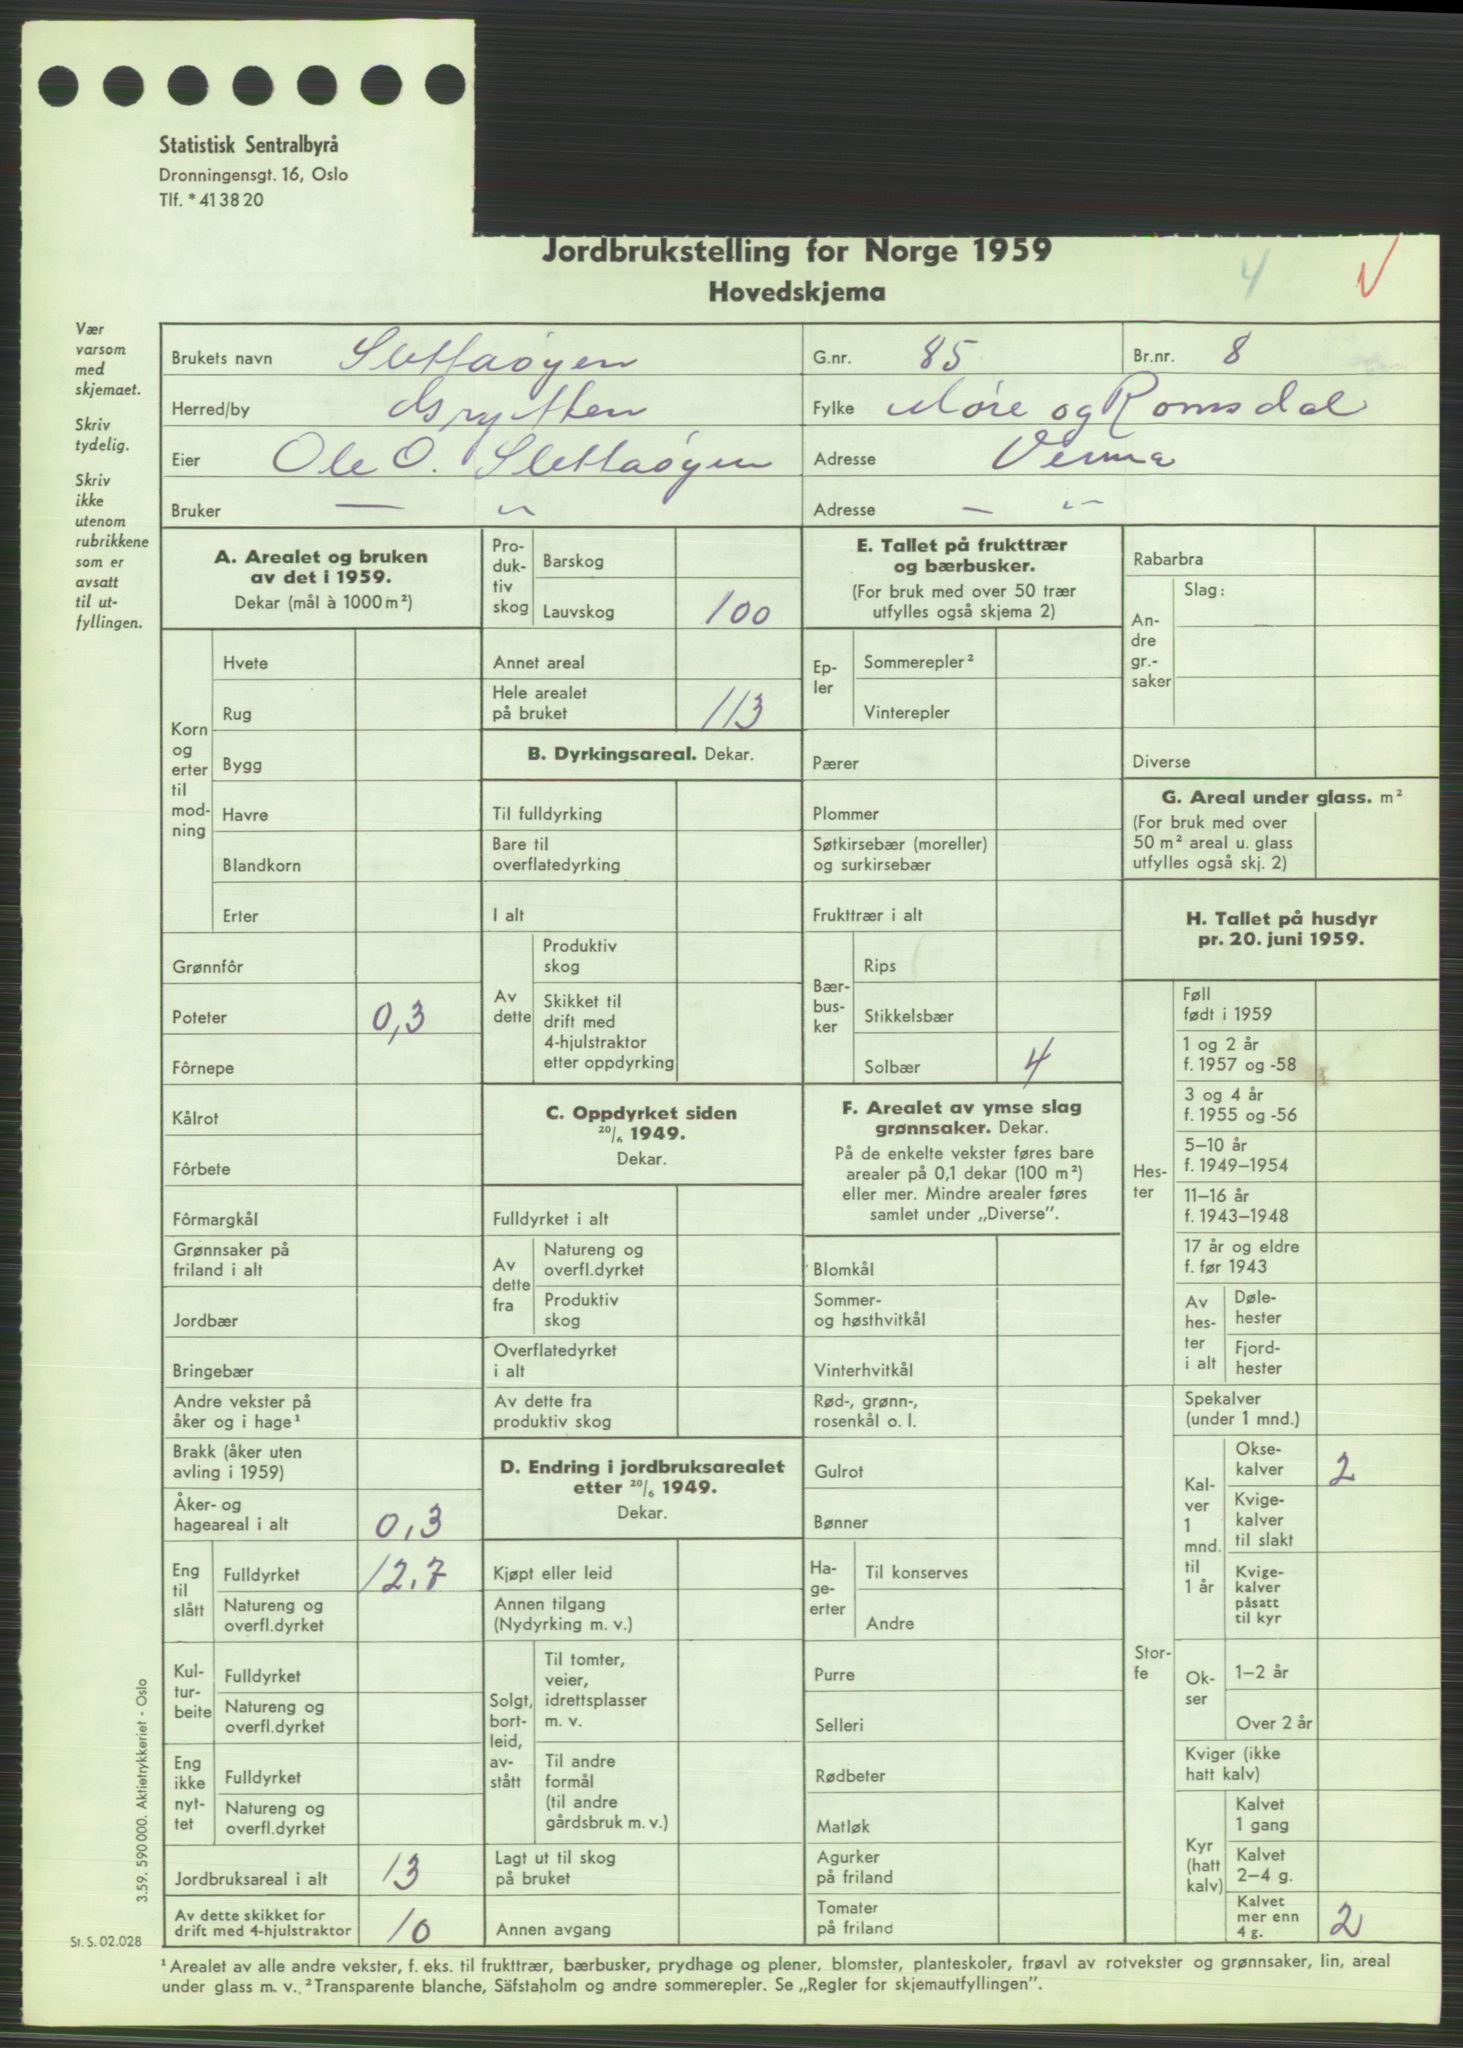 Statistisk Sentralbyrå
Dronningensgt. 16, Oslo
Tlf. *41 38 20
Jordbrukstelling for Norge 1959
Hovedskjema
4 V
Vær
varsom
med
skjemaet.
Skriv
tydelig.
Skriv
ikke
utenom
rubrikkene
som er
avsatt
til ut-
fyllingen.
Brukets navn Slettaöyen G.nr. 85 Br.nr. 8
Herred/by Grytten Fylke Möre og Romsdal
Eier Ole O. Slettaöyen Adresse Verma
Bruker — „ Adresse — „ —
A. Arealet og bruken
av det i 1959.
Dekar (mål à 1000 m²)
Korn
og
erter
til
mod-
ning
Hvete
Rug
Bygg
Havre
Blandkorn
Erter
Grønnfôr
Poteter 0,3
Fôrnepe
Kålrot
Fôrbete
Fôrmargkål
Grønnsaker på
friland i alt
Jordbær
Bringebær
Andre vekster på
åker og i hage¹
Brakk (åker uten
avling i 1959)
Åker- og
hageareal i alt 0,3
Eng
til
slått
Fulldyrket 12,7
Natureng og
overfl.dyrket
Kul-
tur-
beite
Fulldyrket
Natureng og
overfl.dyrket
Eng
ikke
nyt-
tet
Fulldyrket
Natureng og
overfl.dyrket
Jordbruksareal i alt 13
Av dette skikket for
drift med 4-hjulstraktor 10
Pro-
duk-
tiv
skog
Barskog
Lauvskog 100
Annet areal
Hele arealet
på bruket 113
B. Dyrkingsareal. Dekar.
Til fulldyrking
Bare til
overflatedyrking
I alt
Av
dette
Produktiv
skog
Skikket til
drift med
4-hjulstraktor
etter oppdyrking
C. Oppdyrket siden
20/6 1949.
Dekar.
Fulldyrket i alt
Av
dette
fra
Natureng og
overfl.dyrket
Produktiv
skog
Overflatedyrket
i alt
Av dette fra
produktiv skog
D. Endring i jordbruksarealet
etter 20/6 1949.
Dekar.
Kjøpt eller leid
Annen tilgang
(Nydyrking m. v.)
Solgt,
bort-
leid,
av-
stått
Til tomter,
veier,
idrettsplasser
m. v.
Til andre
formål
(til andre
gårdsbruk m. v.)
Lagt ut til skog
på bruket
Annen avgang
E. Tallet på frukttrær
og bærbusker.
(For bruk med over 50 trær
utfylles også skjema 2)
Ep-
ler
Sommerepler²
Vinterepler
Pærer
Plommer
Søtkirsebær (moreller)
og surkirsebær
Frukttrær i alt
Bær-
bus-
ker
Rips
Stikkelsbær
Solbær 4
F. Arealet av ymse slag
grønnsaker. Dekar.
På de enkelte vekster føres bare
arealer på 0,1 dekar (100 m²)
eller mer. Mindre arealer føres
samlet under „Diverse”.
Blomkål
Sommer-
og høsthvitkål
Vinterhvitkål
Rød-, grønn-,
rosenkål o. l.
Gulrot
Bønner
Ha-
ge-
erter
Til konserves
Andre
Purre
Selleri
Rødbeter
Matløk
Agurker
på friland
Tomater
på friland
Rabarbra
An-
dre
gr.-
saker
Slag:
Diverse
G. Areal under glass. m²
(For bruk med over
50 m² areal u. glass
utfylles også skj. 2)
H. Tallet på husdyr
pr. 20. juni 1959.
Hes-
ter
Føll
født i 1959
1 og 2 år
f. 1957 og -58
3 og 4 år
f. 1955 og -56
5–10 år
f. 1949–1954
11–16 år
f. 1943–1948
17 år og eldre
f. før 1943
Av
hes-
ter
i alt
Døle-
hester
Fjord-
hester
Stor-
fe
Spekalver
(under 1 mnd.)
Kal-
ver
1
mnd.
til
1 år
Okse-
kalver 2
Kvige-
kalver
til slakt
Kvige-
kalver
påsatt
til kyr
Ok-
ser
1–2 år
Over 2 år
Kviger (ikke
hatt kalv)
Kyr
(hatt
kalv)
Kalvet
1 gang
Kalvet
2–4 g.
Kalvet
mer enn
4 g. 2
3.59. 590 000. Aktietrykkeriet - Oslo
St. S. 02.028
¹ Arealet av alle andre vekster, f. eks. til frukttrær, bærbusker, prydhage og plener, blomster, planteskoler, frøavl av rotvekster og grønnsaker, lin, areal
under glass m. v. ² Transparente blanche, Säfstaholm og andre sommerepler. Se „Regler for skjemautfyllingen”.